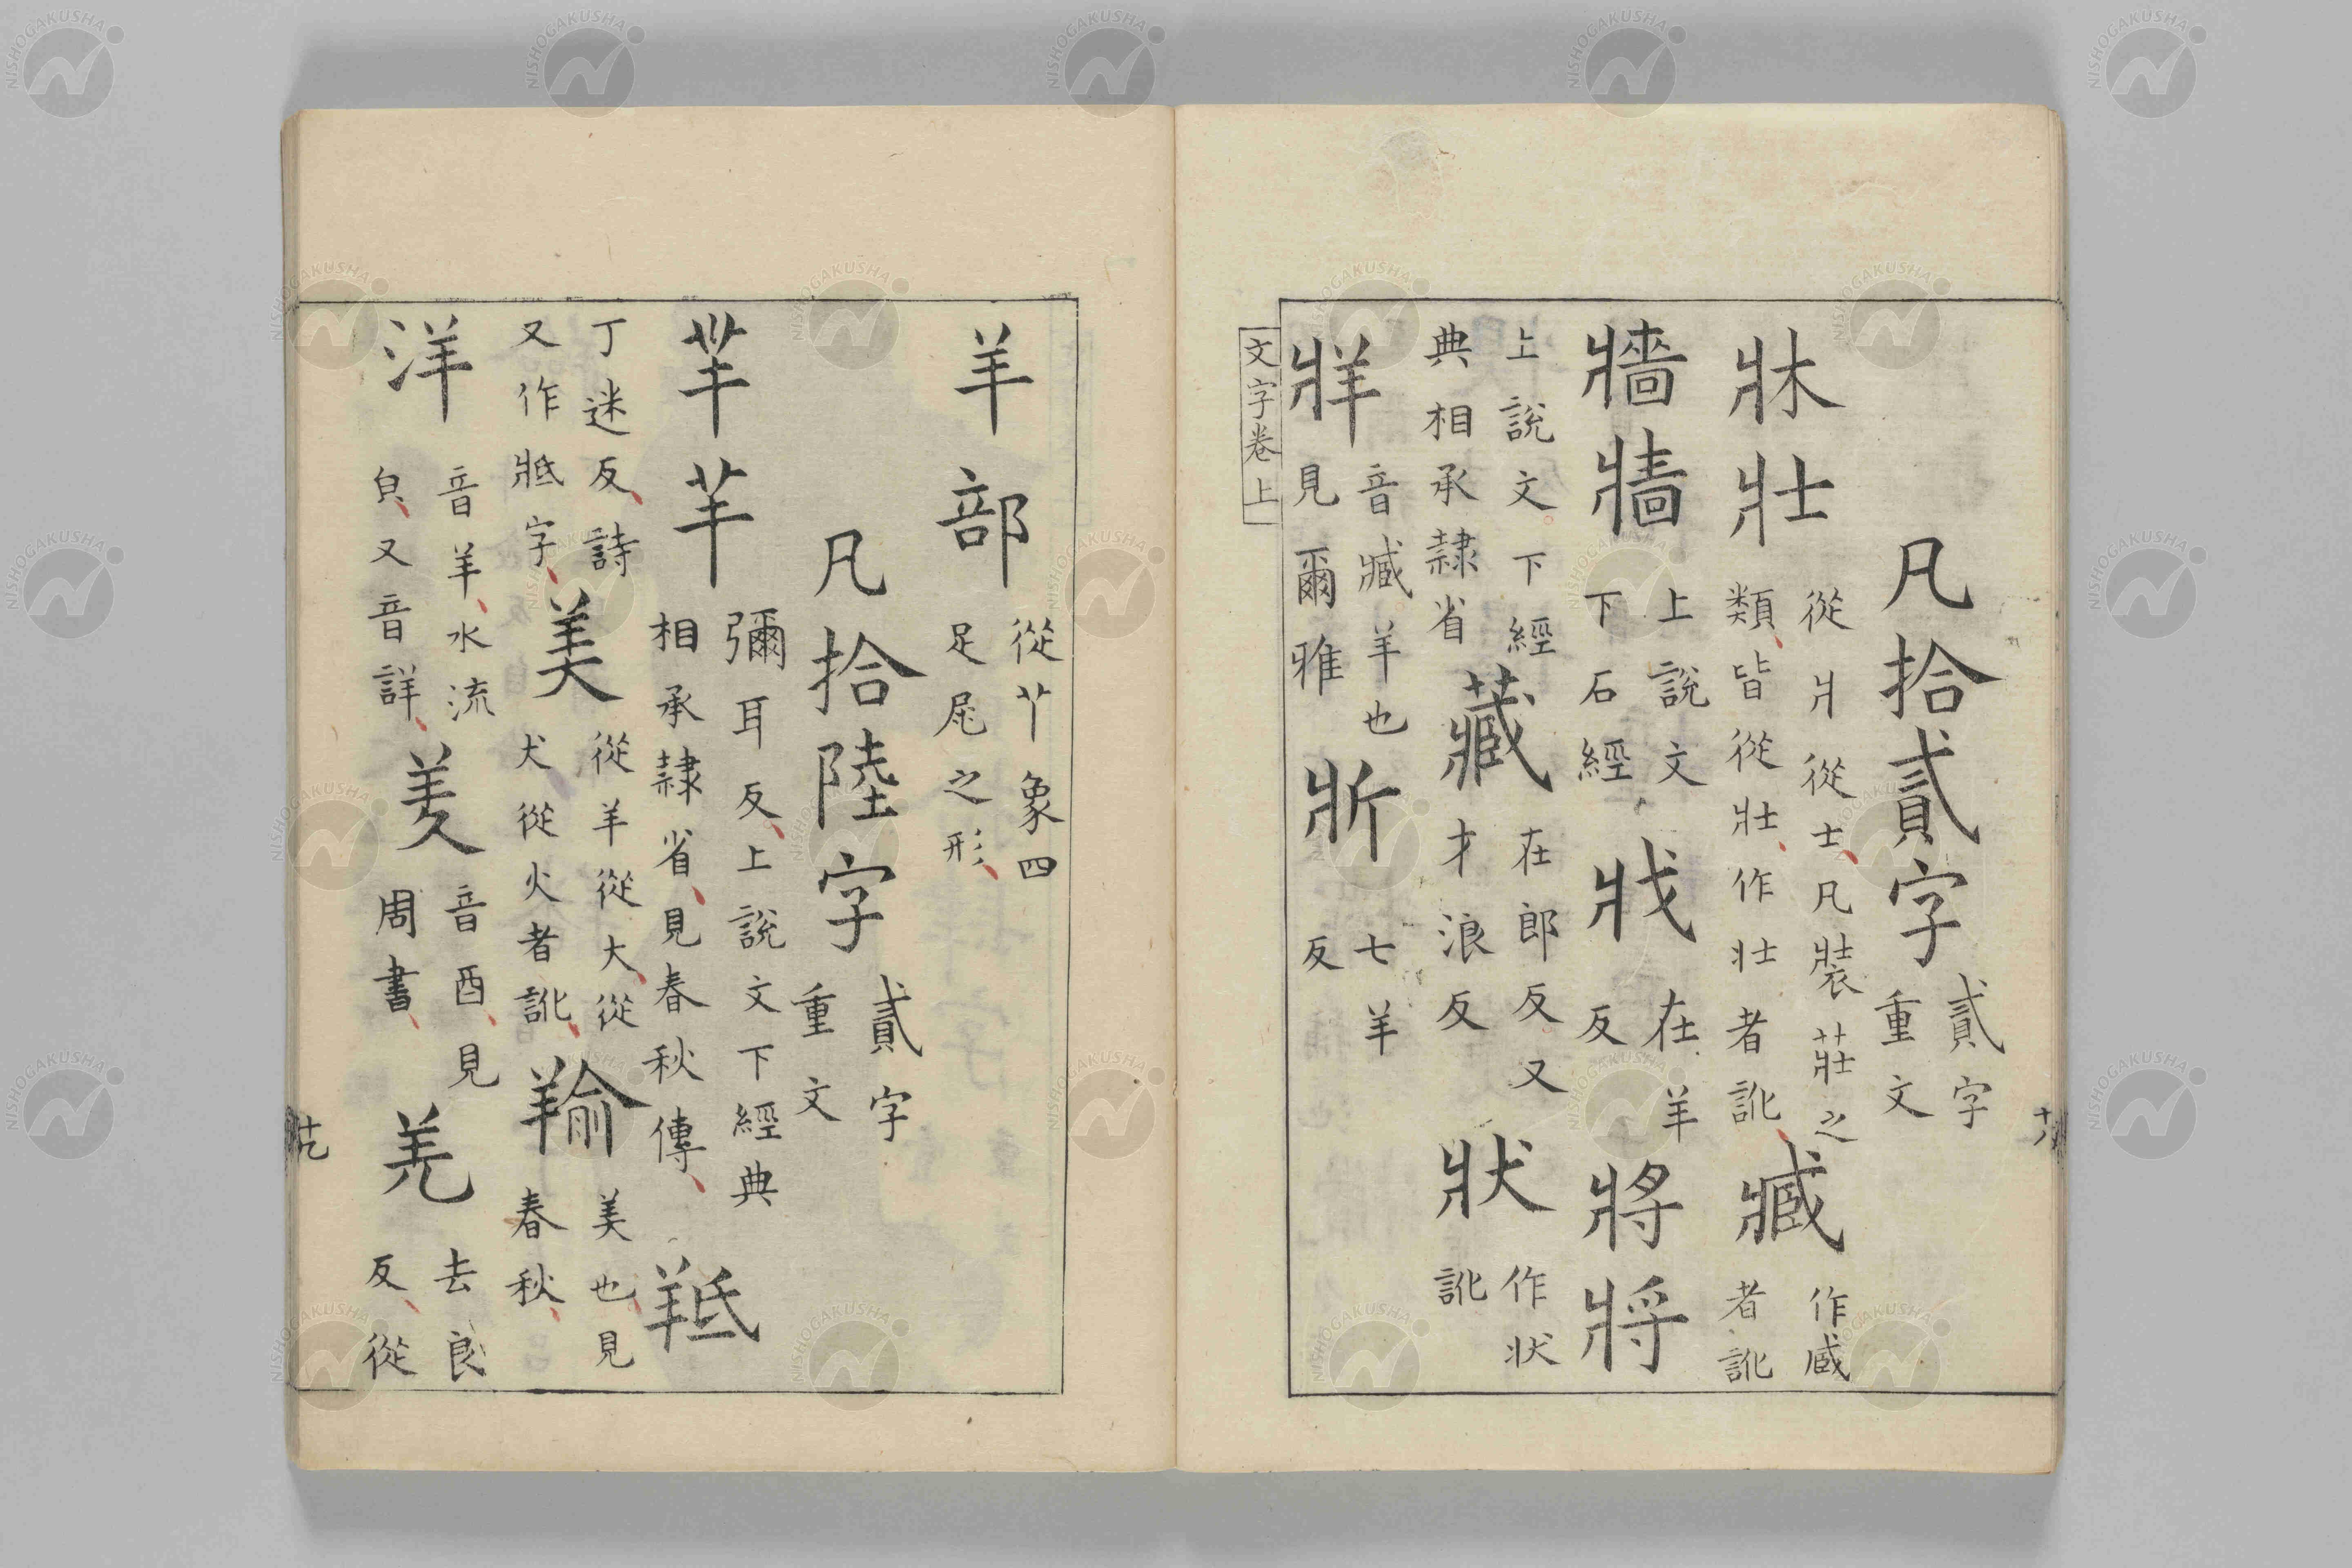 凡拾貳字貳字重文
牀壯從爿從士凡裝莊之類皆從壯作壮者訛臧作臧者訛
牆牆上說文下石經戕在羊反將將
上說文下經典相承隸省藏在郎反又才浪反狀作状訛
牂音臧羊也見爾雅斨七羊反
文字卷上
羊部從𦫳象四足尾之形
凡拾陸字貳字重文
羋芈彌耳反上說文下經典相承隸省見春秋傳羝
丁迷反詩又作牴字美從羊從大從犬從火者訛羭美也見春秋
洋音羊水流皃又音詳羑音酉見周書羌去良反從
NISHOGAKUSHA